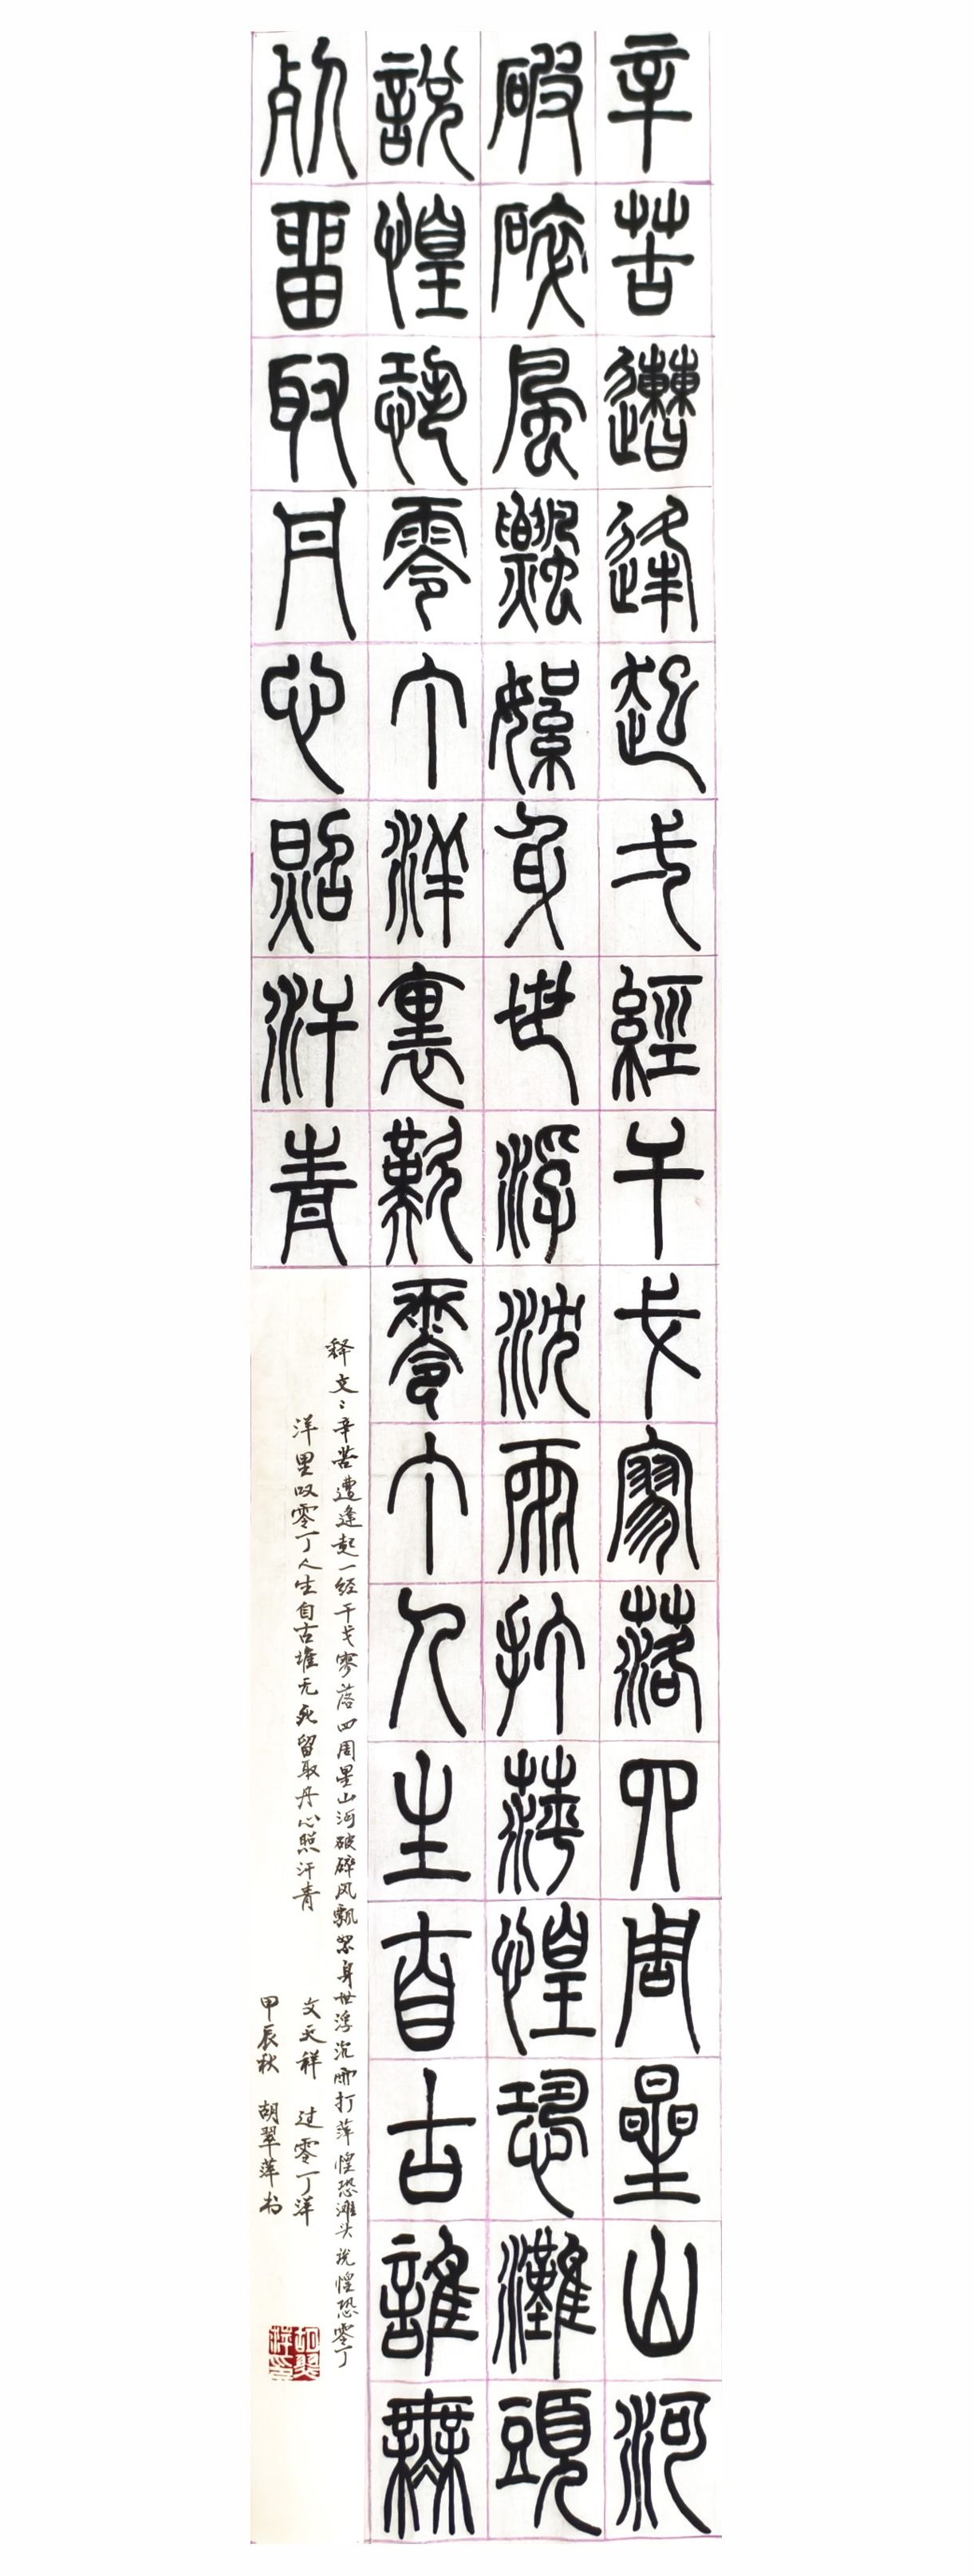 辛苦遭逢起弌經干戈寥落四周星山河
破碎風飄絮身世浮沈雨打萍惶恐灘頭
說惶恐零丁洋裏歎零丁人生自古誰無
死留取丹心照汗青
释文：辛苦遭逢起一经干戈寥落四周星山河破碎风飘絮身世浮沉雨打萍惶恐滩头说惶恐零丁
洋里叹零丁人生自古谁无死留取丹心照汗青
文天祥 过零丁洋
甲辰秋 胡翠萍书
胡翠萍印